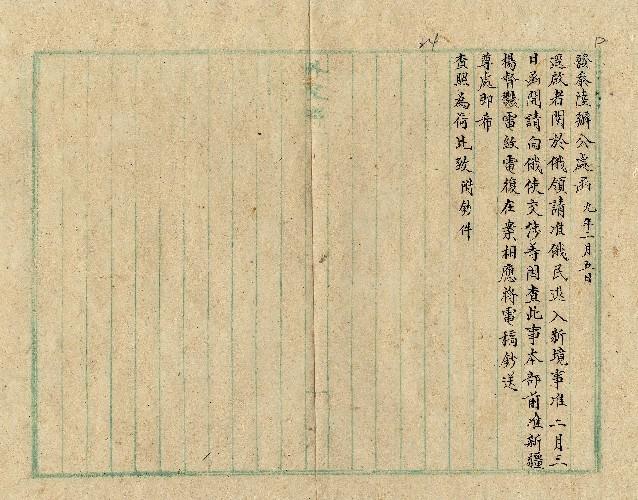 發參陸辦公處函 九年二月五日
逕啟者關於俄領請准俄民逃入新境事准二月三
日函開請向俄使交涉等因查此事本部前准新疆
楊督電故電復在案相應將電稿鈔送
尊處即希
查照為荷此致 附鈔件